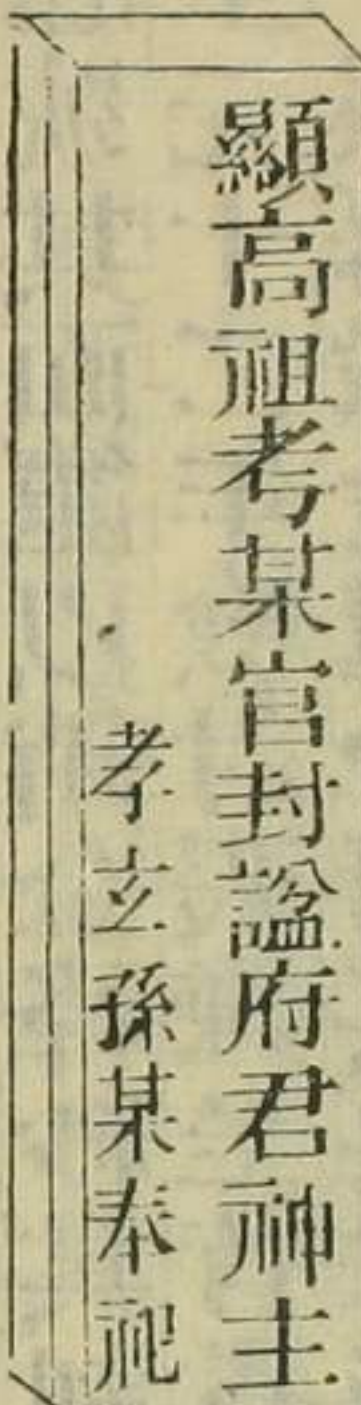 顯高祖考某官封謚府君神主
孝玄孫某奉祀